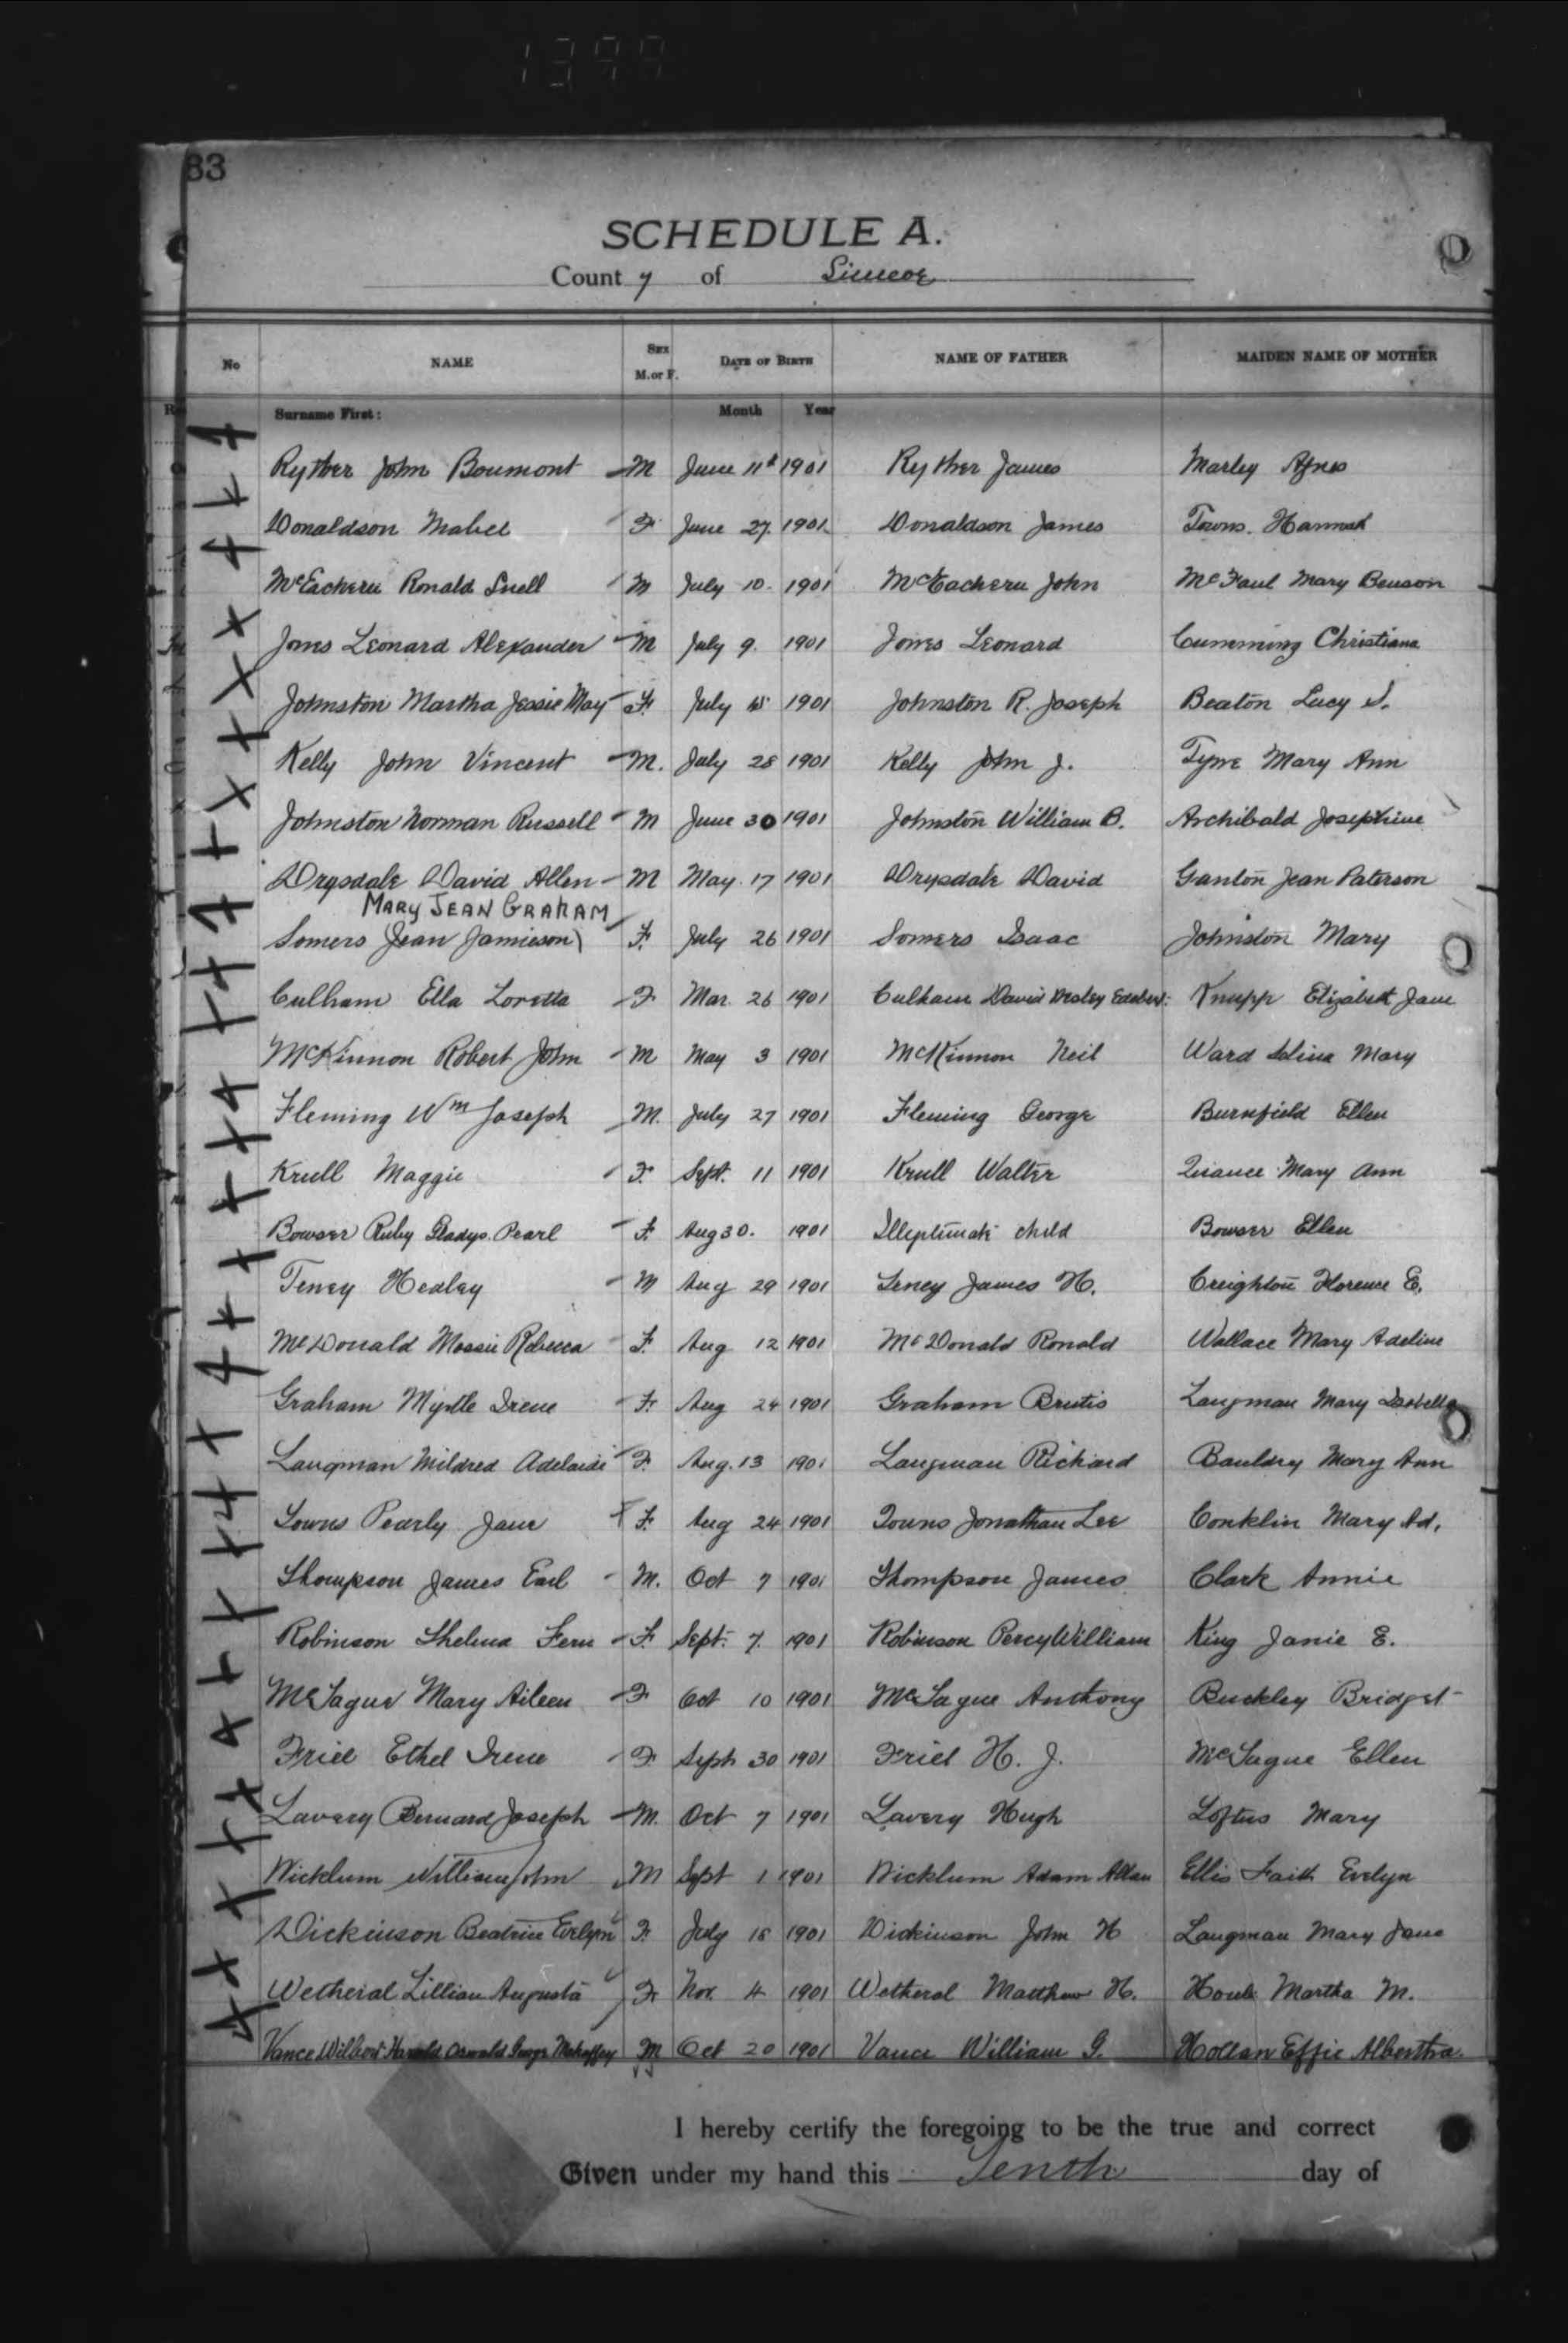 1399
83
SCHEDULE A.
County of Simcoe
No NAME Sex M. or F. Date of Birth NAME OF FATHER MAIDEN NAME OF MOTHER
Surname First: Month Year
Ryther John Boumont M June 11th 1901 Ryther James Marley Agnes
Donaldson Mabel F June 27. 1901 Donaldson James Towns. Hannah
McEachern Ronald Snell M July 10. 1901 McEachern John McFaul Mary Benson
Jones Leonard Alexander M July 9. 1901 Jones Leonard Cumming Christiana
Johnston Martha Jessie May F. July 1901 Johnston R. Joseph Beaton Lucy S.
Kelly John Vincent M. July 28 1901 Kelly John J. Tyne Mary Ann
Johnston Norman Russell M June 30 1901 Johnston William B. Archibald Josephine
Drysdale David Allen M May 17 1901 Drysdale David Ganton Jean Paterson
MARY JEAN GRAHAM
Somers (Jean Jamieson) F. July 26 1901 Somers Isaac Johnston Mary
Culham Ella Loretta F Mar. 26 1901 Culham David Wesley Knupp Elizabeth Jane
McKinnon Robert John M May 3 1901 McKinnon Neil Ward Selina Mary
Fleming Wm Joseph M. July 27 1901 Fleming George Burnfield Ellen
Krull Maggie F. Sept. 11 1901 Krull Walter Quance Mary Ann
Bowser Ruby Gladys. Pearl F. Aug 30. 1901 Illegitimate child Bowser Ellen
Teney Hedley M Aug 29 1901 Teney James H. Creighton Florence E.
McDonald Mossie Rebecca F. Aug 12 1901 McDonald Ronald Wallace Mary Adeline
Graham Myrtle Irene F. Aug 24 1901 Graham Brutis Langman Mary Isabella
Langman Mildred Adelaide F. Aug. 13 1901 Langman Richard Bauldry Mary Ann
Towns Pearly Jane F. Aug 24 1901 Touns Jonathan Lee Conklin Mary Ad.
Thompson James Earl M. Oct 7 1901 Thompson James Clark Annie
Robinson Thelma Fern F. Sept. 7. 1901 Robinson Percy William King Janie E.
McTague Mary Aileen F Oct 10 1901 McTague Anthony Buckley Bridget
Friel Ethel Irene F. Sept 30 1901 Friel H. J. McTague Ellen
Lavery Bernard Joseph M. Oct 7 1901 Lavery Hugh Loftus Mary
Wicklum William John M Sept 1 1901 Wicklum Adam Allan Ellis Faith Evelyn
Dickinson Beatrice Evelyn F. July 1901 Dickinson John H Langman Mary Jane
Wetheral Lillian Augusta F. Nov. 4 1901 Wetheral Matthew H. Martha M.
Vance Wilbert Harold Oswald George Mahaffey M Oct 20 1901 Vance William G. Hollan Effie Albertha.
I hereby certify the foregoing to be the true and correct
Given under my hand this Tenth day of